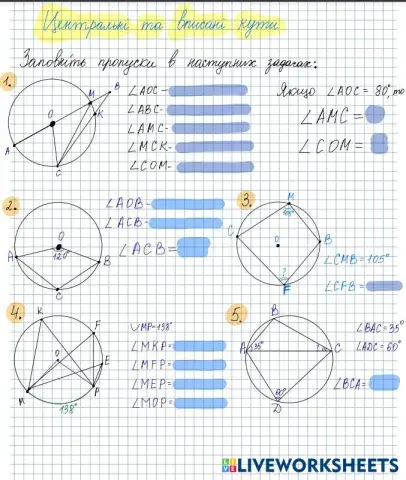 Центральні та вписані кути
Заповніть пропуски в наступних задачах:
1.
A
O
M
B
K
C
∠AOC-
∠ABC-
∠AMC-
∠MCK-
∠COM-
Якщо ∠AOC = 80°, то
∠AMC=
∠COM=
2.
O
120°
A
B
C
∠AOB-
∠ACB-
∠ACB=
3.
M
105°
C
O
B
?
F
∠CMB=105°
∠CFB=
4.
K
F
O
E
M
P
138°
∪MP=138°
∠MKP=
∠MFP=
∠MEP=
∠MOP=
5.
B
A
35°
?
C
60°
D
∠BAC=35°
∠ADC=60°
∠BCA=
LIVEWORKSHEETS